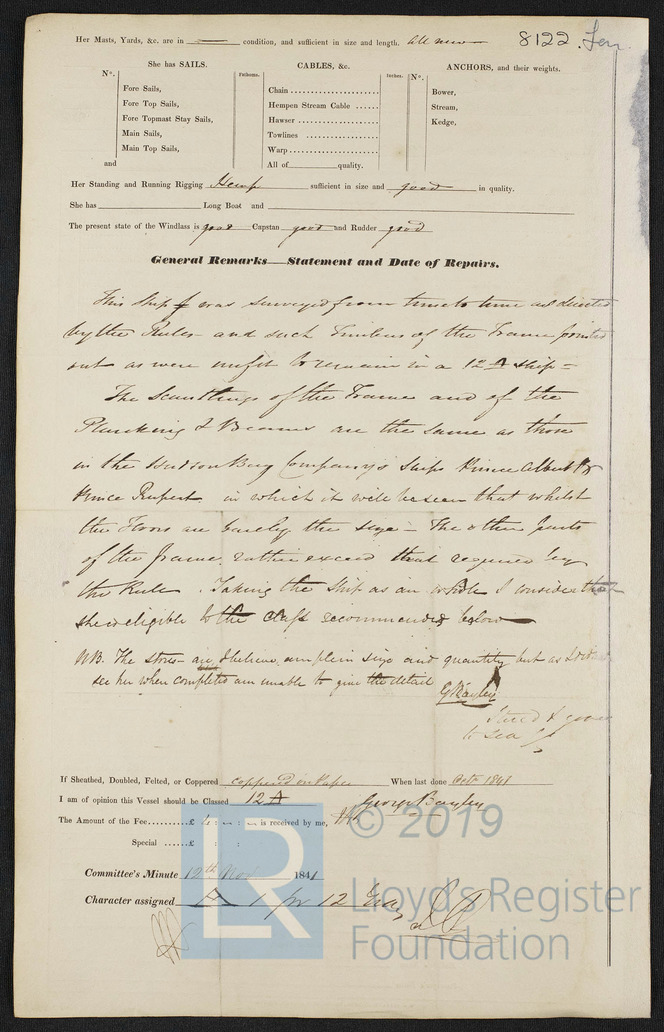 Her Masts, Yards, &c. are in condition, and sufficient in size and length. All new 8122. Lon
She has SAILS. CABLES, &c. ANCHORS, and their weights.
No. Fathoms. Inches. No.
Fore Sails, Chain Bower,
Fore Top Sails, Hempen Stream Cable Stream,
Fore Topmast Stay Sails, Hawser Kedge,
Main Sails, Towlines
Main Top Sails, Warp
and All of quality.
Her Standing and Running Rigging Hemp sufficient in size and good in quality.
She has Long Boat and
The present state of the Windlass is good Capstan good and Rudder good
General Remarks—Statement and Date of Repairs.
This Ship was surveyed from time to time as directed
by the Rules and such Timbers of the Frame pointed
out as were unfit to remain in a 12 A Ship =
The Scantlings of the Frame and of the
Planking & Beams are the same as those
in the Hudson Bay Company's Ships Prince Albert &
Prince Rupert in which it will be seen that whilst
the Floors are barely the size - The other parts
of the frame rather exceed that required by
the Rule. Taking the Ship as an whole I consider that
she is eligible to the Class recommended below
NB. The stores are I believe ample in size and quantity but as I did not
see her when completed am unable to give the detail G Bayley
to sea
If Sheathed, Doubled, Felted, or Coppered coppered on Paper When last done Octr 1841
I am of opinion this Vessel should be Classed 12 A George Bayley
The Amount of the Fee £ : : is received by me,
Special £ : :
Committee's Minute 12th Nov 1841
Character assigned A 1 for 12 Years
© 2019
LR
Lloyd's Register
Foundation